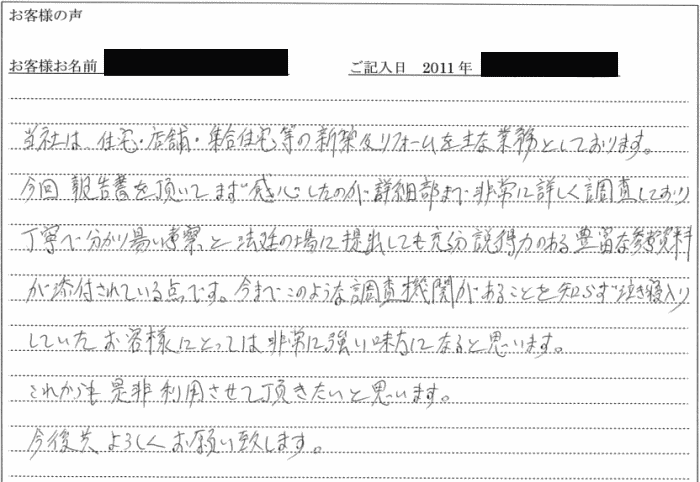 お客様の声
お客様お名前 ご記入日 2011年
当社は、住宅・店舗・集合住宅等の新築及リフォームを主な業務としております。
今回報告書を頂いてまず感心したのが詳細部まで非常に詳しく調査しており
丁寧で分かり易い考察と法廷の場に提出しても充分説得力のある豊富な参考資料
が添付されている点です。今までこのような調査機関があることを知らず泣き寝入り
していたお客様にとっては非常に強い味方になると思います。
これからも是非利用させて頂きたいと思います。
今後共よろしくお願い致します。